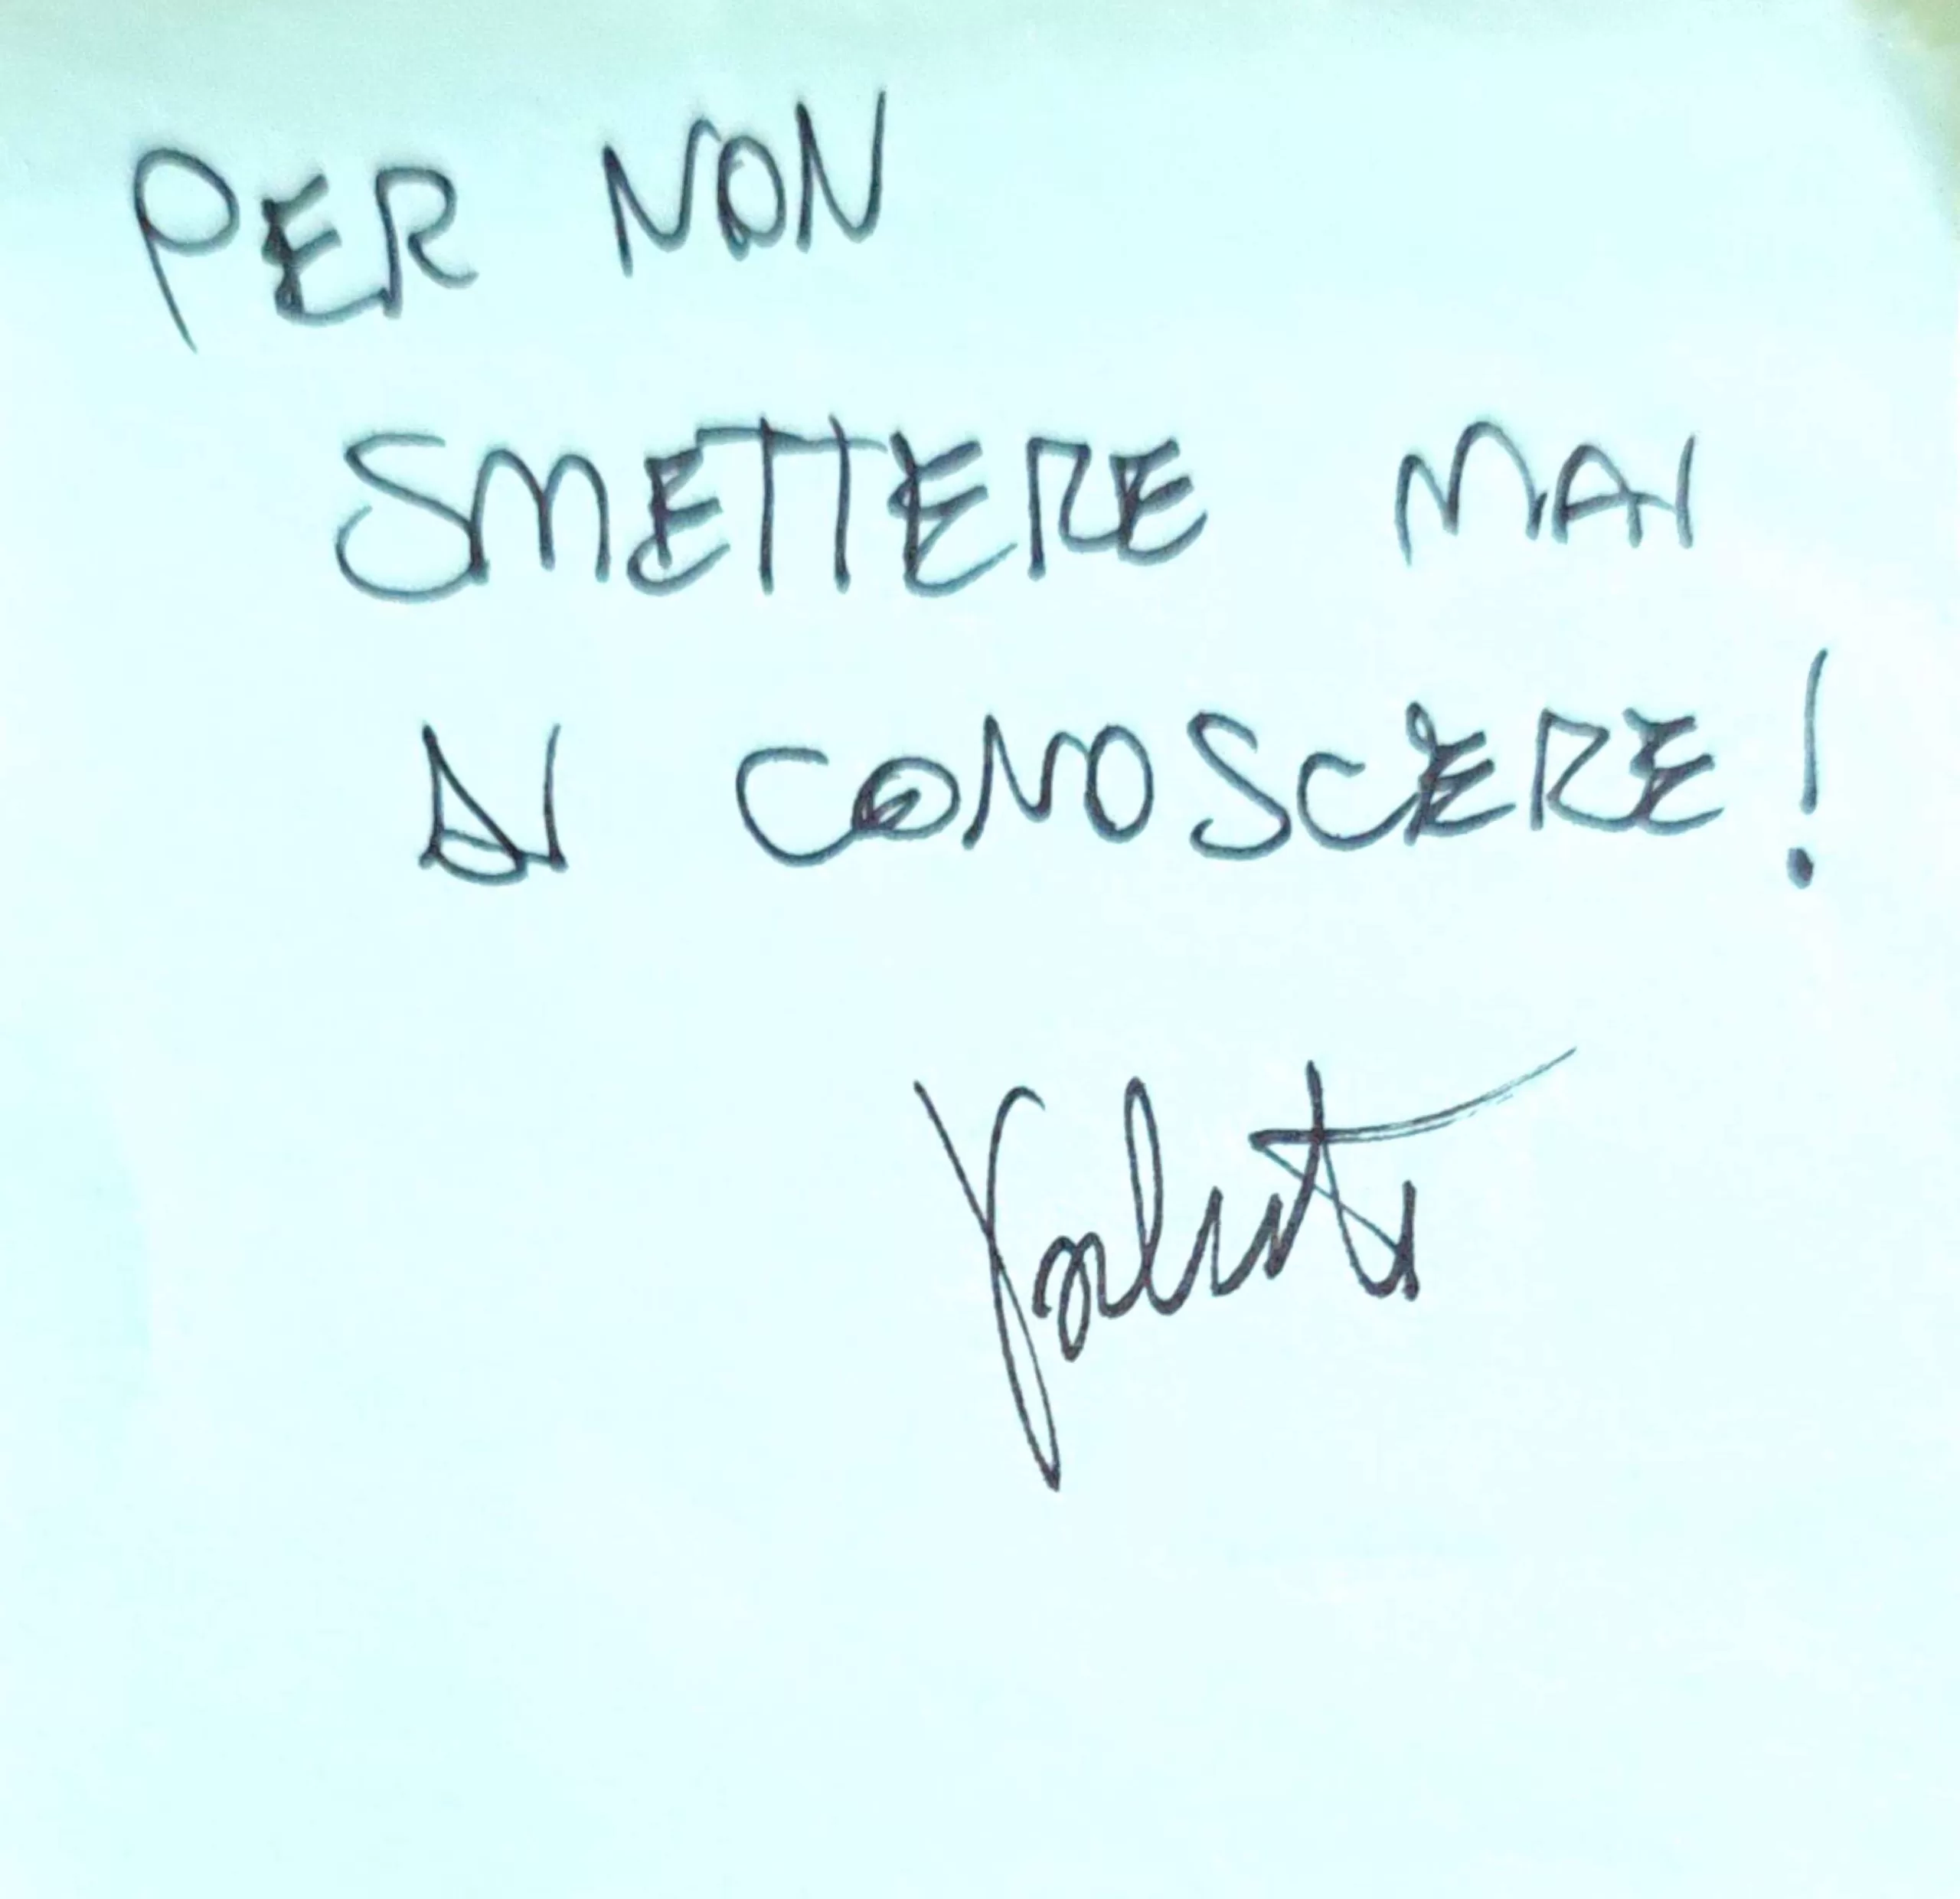 PER NON
SMETTERE MAI
DI CONOSCERE!